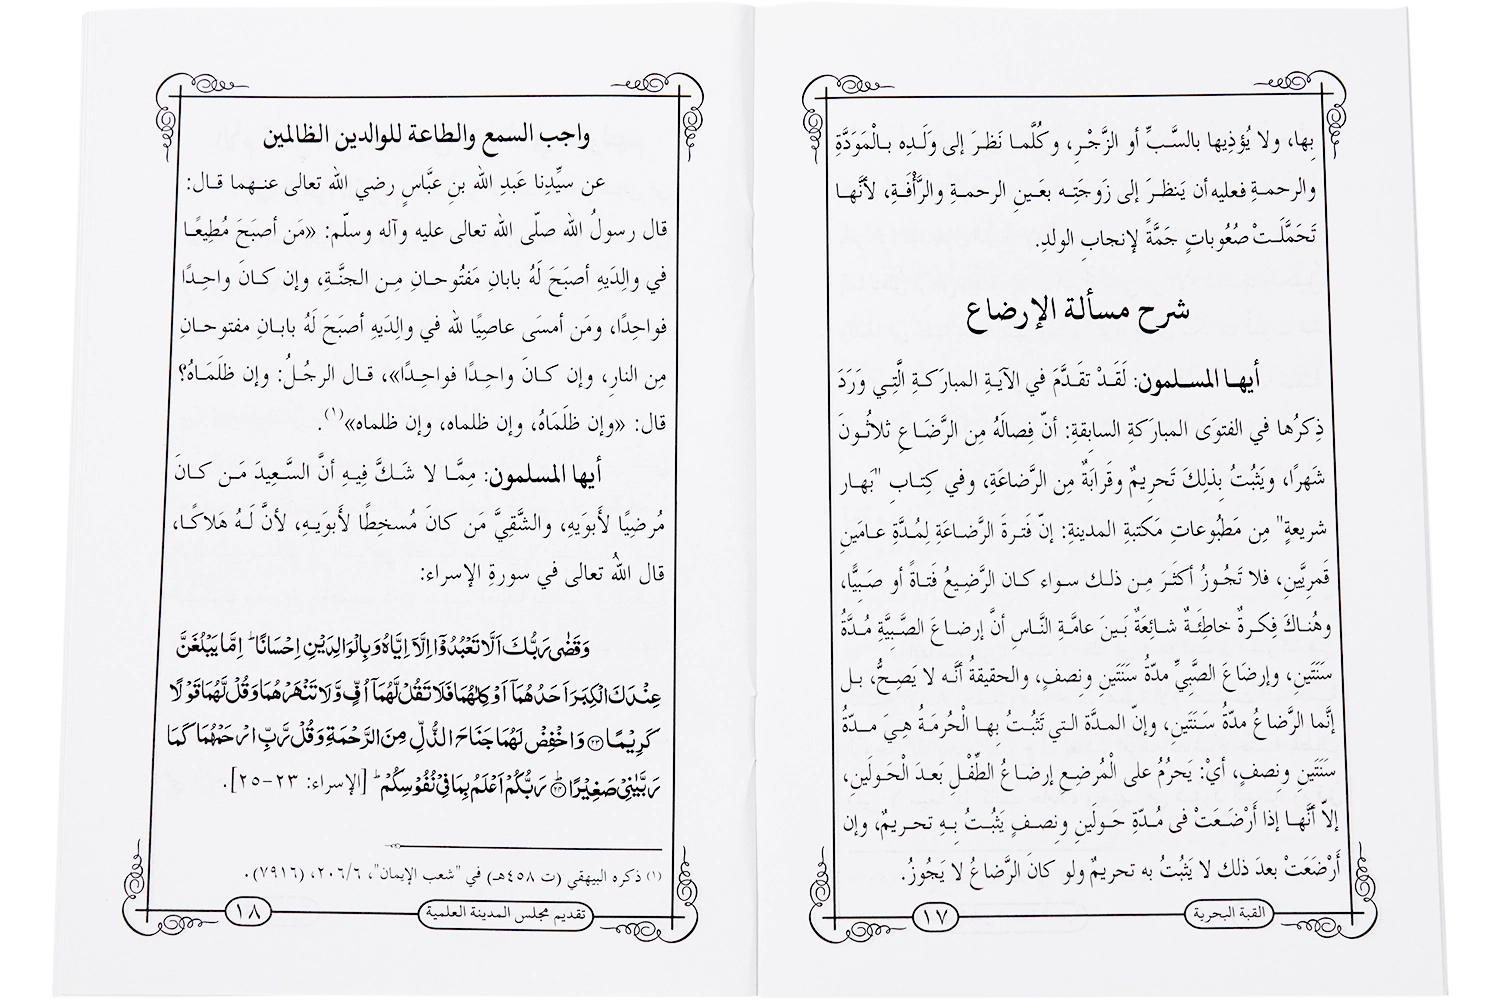 بِها، ولا يُؤذِيها بالسَّبِّ أو الزَّجْرِ، وكُلَّما نَظرَ إلى وَلَدِه بالْمَوَدَّةِ
والرحمةِ فعليه أن يَنظرَ إلى زَوجَتِه بعَينِ الرحمةِ والرَّأْفَةِ، لأنَّها
تَحَمَّلَتْ صُعُوباتٍ جَمَّةً لإنجابِ الولدِ.
شرح مسألة الإرضاع
أيها المسلمون: لَقَدْ تقَدَّمَ في الآيَةِ المبارَكةِ الَّتِي وَرَدَ
ذِكرُها في الفتوَى المبارَكةِ السابقةِ: أنّ فِصالَهُ مِن الرَّضَاعِ ثلاثُونَ
شَهرًا، ويَثبُتُ بِذلِكَ تَحرِيمٌ وقَرابَةٌ مِن الرَّضاعَةِ، وفي كِتابِ "بَهار
شريعةٍ" مِن مَطبُوعاتِ مَكتبةِ المدينةِ: إنّ فَترةَ الرَّضاعَةِ لِمُدَّةِ عامَينِ
قَمرِيَّينِ، فلا تَجُوزُ أكثَرَ مِن ذلك سواء كان الرَّضِيعُ فَتاةً أو صَبِيًّا،
وهُناكَ فِكرةٌ خاطِئَةٌ شائِعَةٌ بَينَ عامَّةِ النَّاسِ أنَّ إرضاعَ الصَّبِيَّةِ مُدَّةُ
سَنَتَينِ، وإرضَاعَ الصَّبِيِّ مدّةُ سَنَتَينِ ونِصفٍ، والحقيقةُ أنَّه لا يَصِحُّ، بل
إنَّما الرَّضاعُ مدّةُ سَنَتَينِ، وإنّ المدَّةَ التي تَثبُتُ بِها الْحُرمَةُ هِيَ مدّةُ
سَنَتَينِ ونِصفٍ، أيْ: يَحرُمُ على الْمُرضِعِ إرضاعُ الطِّفْلِ بَعدَ الْحَولَينِ،
إلاّ أنَّها إذا أرْضَعَتْ فى مُدّةِ حَولَينِ ونِصفٍ يَثبُتُ بِهِ تحريمٌ، وإن
أرْضَعَتْ بعدَ ذلك لا يَثبُتُ به تحريمٌ ولو كانَ الرَّضاعُ لا يَجُوزُ.
القبة البحرية
١٧
واجب السمع والطاعة للوالدين الظالمين
عن سيِّدِنا عَبدِ الله بنِ عبَّاسٍ رضي الله تعالى عنهما قال:
قال رسولُ الله صلّى الله تعالى عليه وآله وسلّم: «مَن أصبَحَ مُطِيعًا
في والِدَيهِ أصبَحَ لَهُ بابانِ مَفتُوحانِ مِن الجنَّةِ، وإن كانَ واحِدًا
فواحِدًا، ومَن أمسَى عاصِيًا لله في والِدَيهِ أصبَحَ لَهُ بابانِ مفتوحانِ
مِن النارِ، وإن كانَ واحِدًا فواحِدًا»، قال الرجُلُ: وإن ظلَمَاهُ؟
قال: «وإن ظلَمَاهُ، وإن ظلماه، وإن ظلماه»(١).
أيها المسلمون: مِمَّا لا شَكَّ فِيهِ أنَّ السَّعِيدَ مَن كانَ
مُرضِيًا لأبوَيهِ، والشَّقِيَّ مَن كانَ مُسخِطًا لأَبوَيهِ، لأنَّ لَهُ هَلاكًا،
قال اللهُ تعالى في سورةِ الإسراء:
وَقَضٰى رَبُّكَ اَلَّا تَعْبُدُوْٓا اِلَّآ اِيَّاهُ وَبِالْوَالِدَيْنِ اِحْسَانًا ؕ اِمَّا يَبْلُغَنَّ
عِنْدَكَ الْكِبَرَ اَحَدُهُمَآ اَوْ كِلٰهُمَا فَلَا تَقُلْ لَّهُمَآ اُفٍّ وَّلَا تَنْهَرْهُمَا وَقُلْ لَّهُمَا قَوْلًا
كَرِيْمًا ﴿٢٣﴾ وَاخْفِضْ لَهُمَا جَنَاحَ الذُّلِّ مِنَ الرَّحْمَةِ وَقُلْ رَّبِّ ارْحَمْهُمَا كَمَا
رَبَّيٰنِيْ صَغِيْرًا ﴿٢٤﴾ رَبُّكُمْ اَعْلَمُ بِمَا فِيْ نُفُوْسِكُمْ ؕ [الإسراء: ٢٣-٢٥].
(١) ذكره البيهقي (ت ٤٥٨هـ) في "شعب الإيمان"، ٢٠٦/٦، (٧٩١٦).
تقديم مجلس المدينة العلمية
١٨